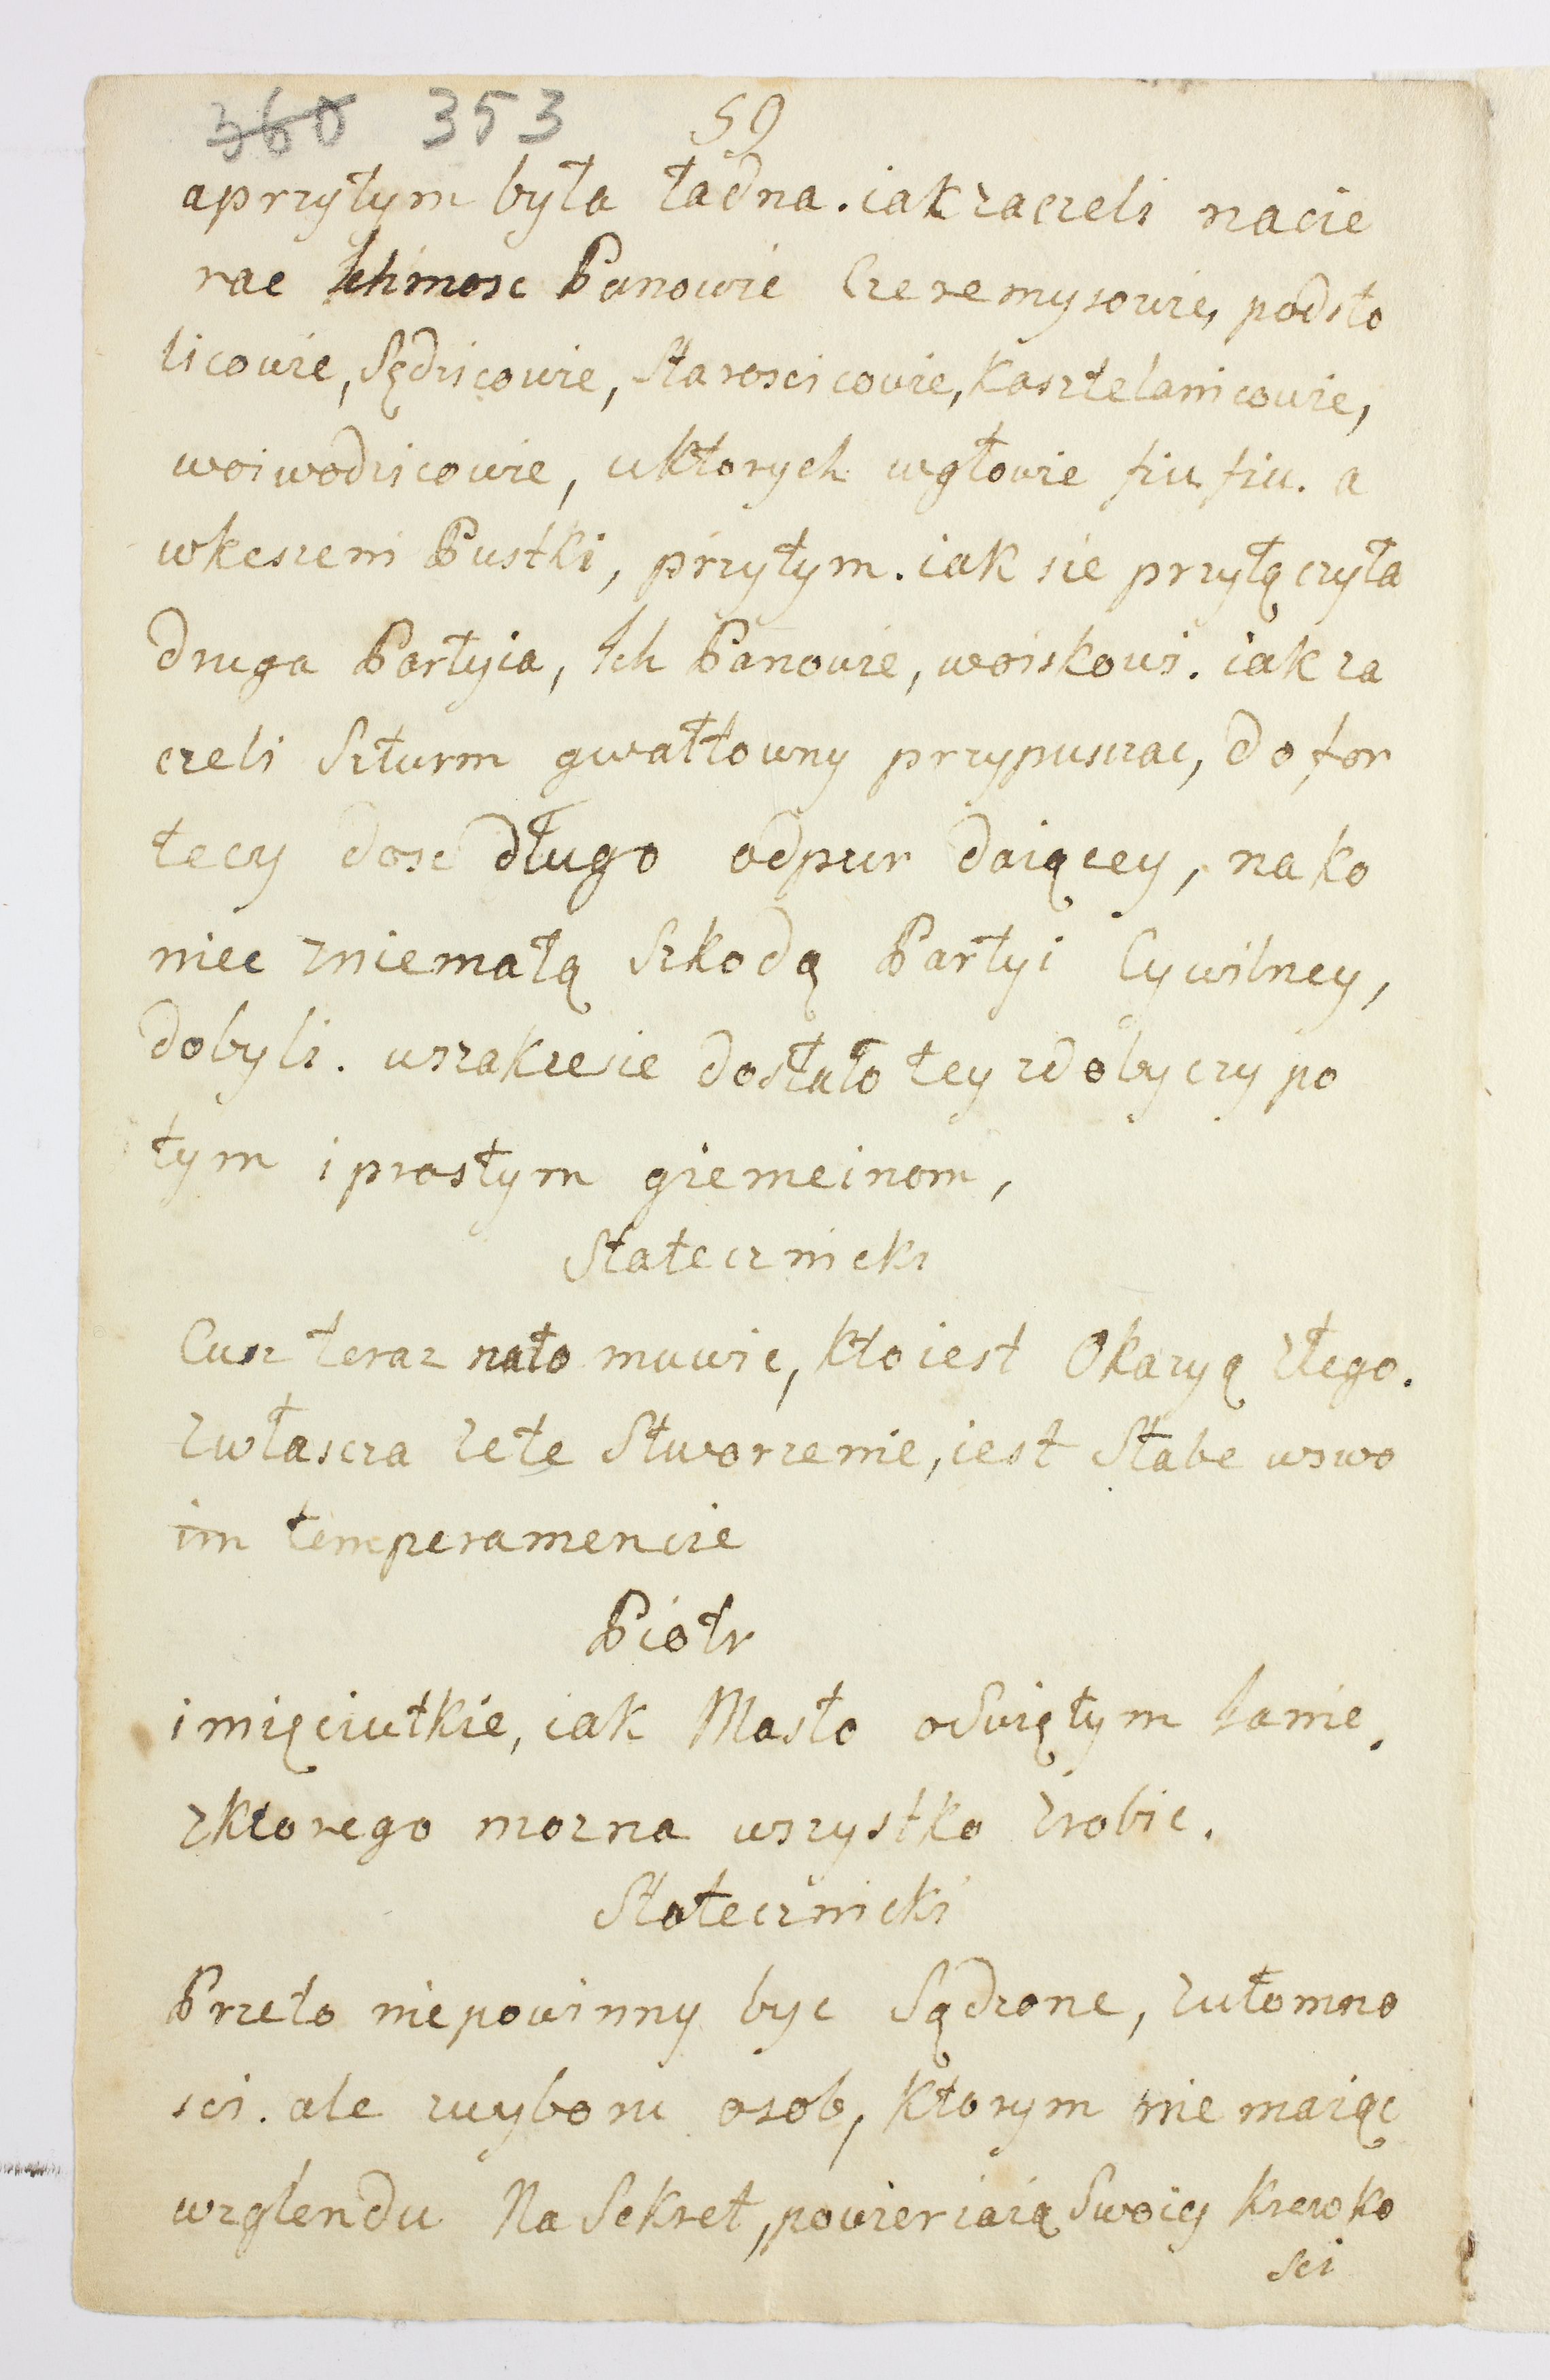 360 353 59
aprzytym była ładna. iak zaczeli nacie
rac Ichmosc Panowie Czeremysowie, podsto
licowie, Sędzicowie, Staroscicowie, Kasztelanicowie,
woiwodzicowie, uktorych wgłowie fiu fiu. a
wkeszeni Pustki, przytym. iak sie przyłączyła
druga Partyia, Ich Panowie, woiskowi. iak za
czeli Szturm gwałtowny przypuszac, do for
tecy dosc długo odpur daiącey, nako
niec zniemałą Szkodą Partyi Cywilney,
dobyli. wszakzesie dostało tey zdobyczy po
tym i prostym giemeinom,
Statecznicki
Cusz teraz nato muwic, kto iest Okazyą złego.
zwłascza zete Stworzenie, iest Słabe wswo
im temperamencie
Piotr
i mięciutkie, iak Masło oSwiętym Janie,
zktorego mozna wszystko zrobic.
Statecznicki
Przeto niepowinny byc Sądzone, zułomno
sci. ale zwyboru osob, ktorym nie maiąc
wzglendu Na Sekret, powierzaią Swoiey krewko
sci